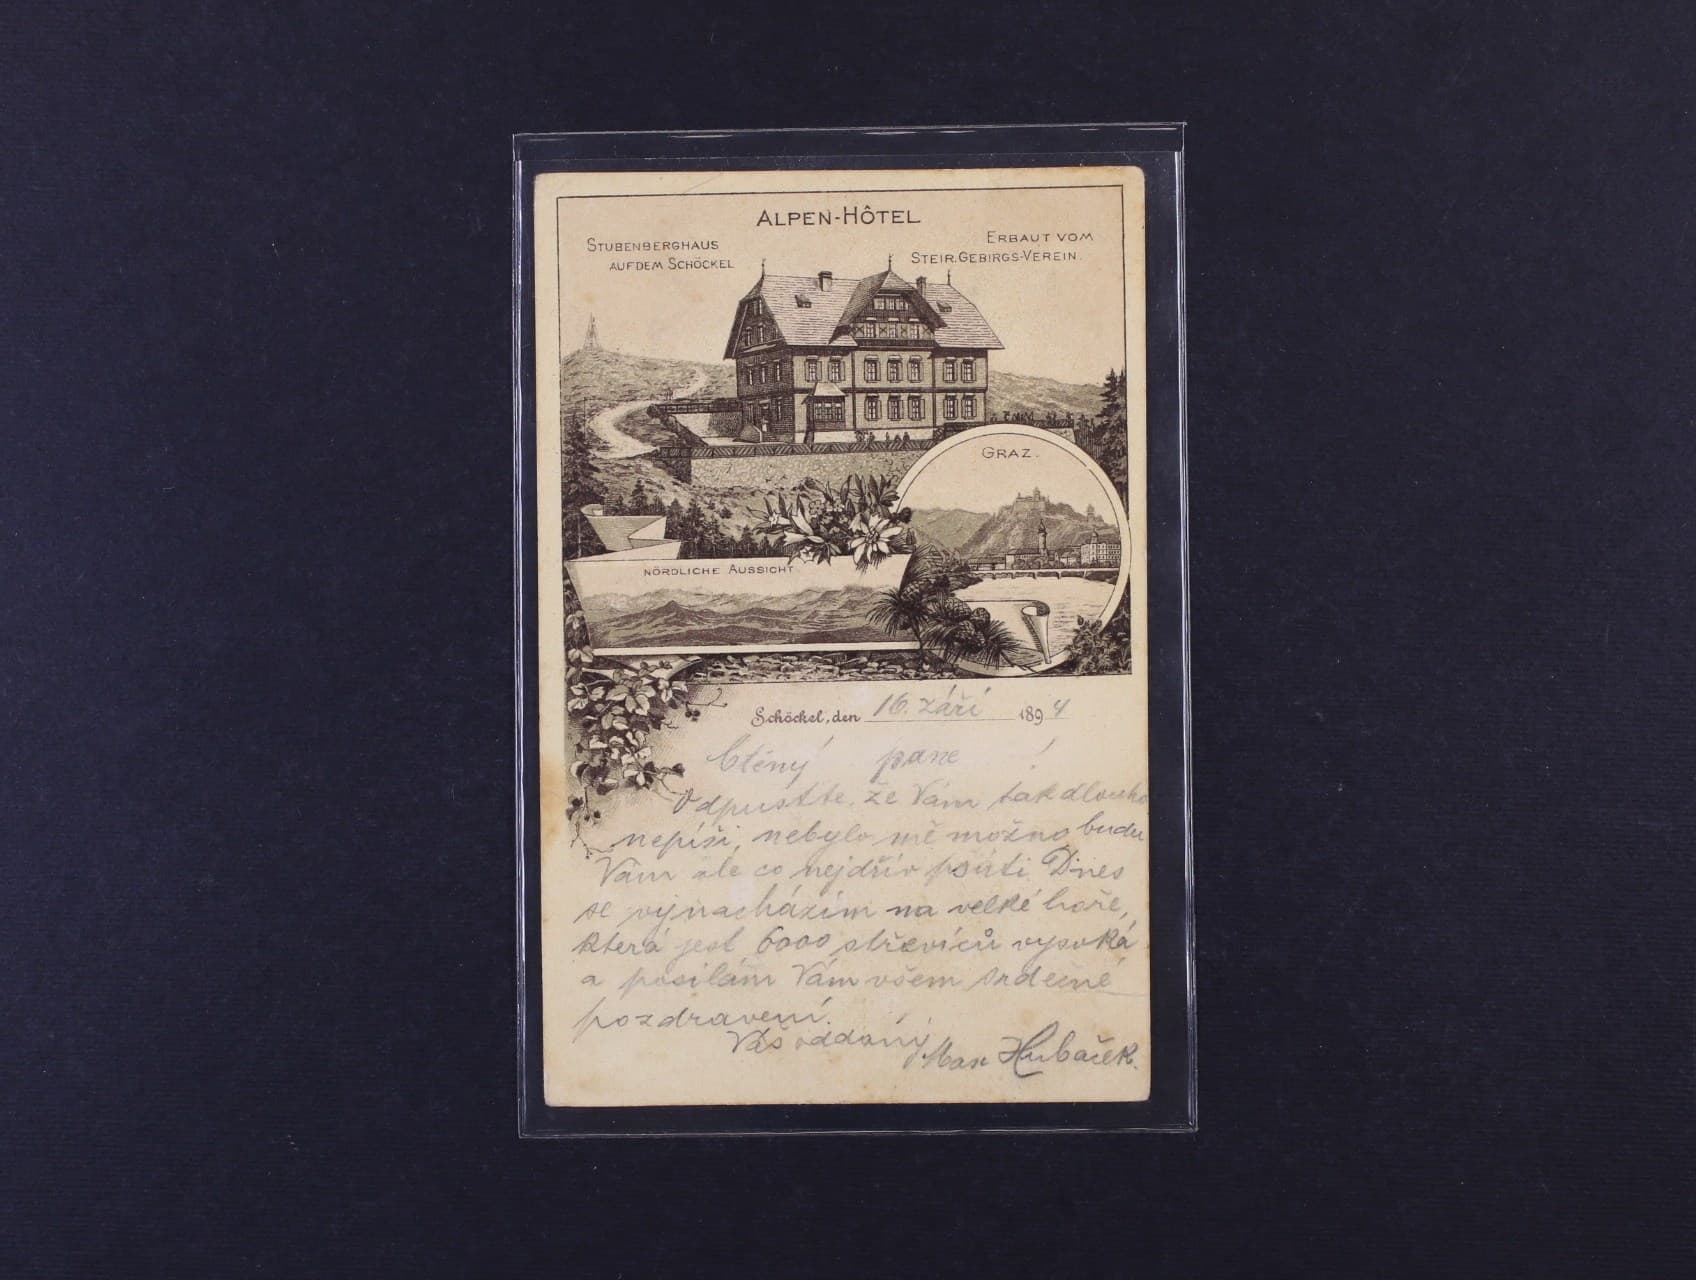 ALPEN-HÔTEL
STUBENBERGHAUS
AUF DEM SCHÖCKEL
ERBAUT VOM
STEIR. GEBIRGS-VEREIN.
GRAZ.
NÖRDLICHE AUSSICHT.
Schöckel, den 16. září 1894
Ctěný pane !
Odpusťte, že Vám tak dlouho
nepíši, nebylo mě možno budu
Vám ale co nejdřív psáti. Dnes
se vynacházím na velké hoře,
která jest 6000 střevíců vysoká
a posílám Vám všem srdečné
pozdravení.
Váš oddaný
Max Hubáček.